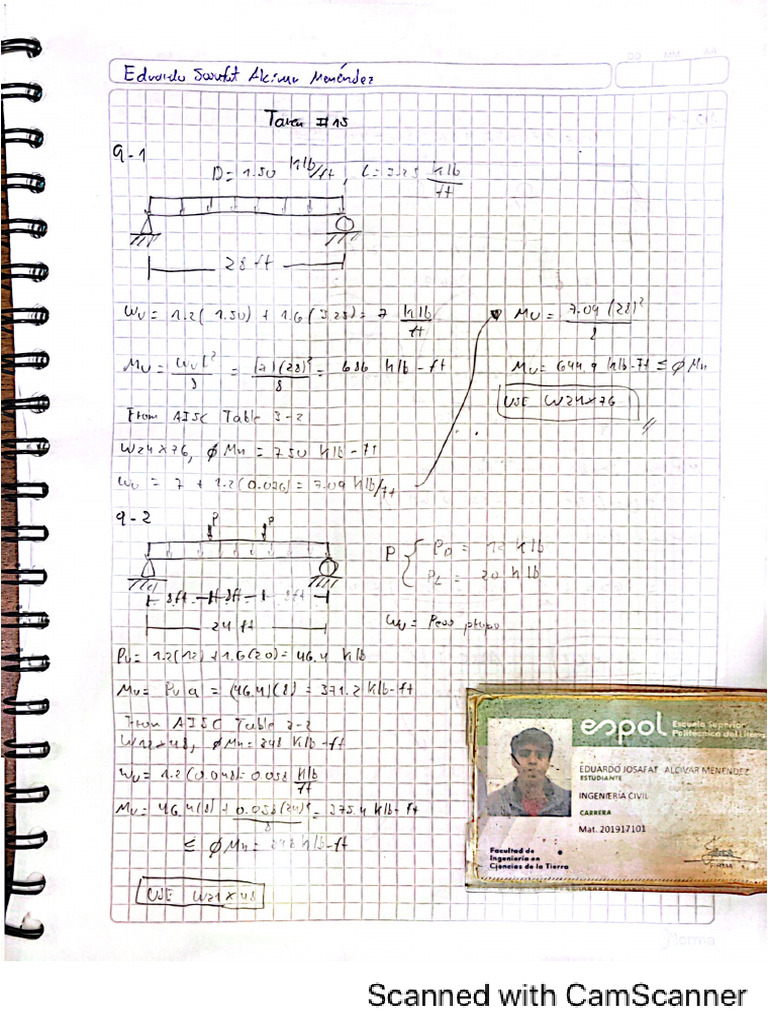 Eduardo Josafat Alcivar Menéndez
Tarea #15
9-1
D= 1.50 klb/ft, L= 3.25 klb/ft
28 ft
Wu= 1.2(1.50) + 1.6(3.25)= 7 klb/ft
Mu= WuL²/8 = (7)(28)²/8 = 686 klb-ft
From AISC Table 3-2
W24x76, ϕMn = 750 klb-ft
Wu = 7 + 1.2(0.076)= 7.09 klb/ft
Mu= 7.09 (28)²/8
Mu= 694.9 klb-ft ≤ ϕMn
USE W24x76
9-2
P P
8ft 8ft 8ft
24 ft
P { PD = 12 klb
PL = 20 klb
Wu= Peso propio
Pu= 1.2(12)+1.6(20)= 46.4 klb
Mu= Pu a = (46.4)(8)= 371.2 klb-ft
From AISC Table 3-2
ϕMn= 398 klb-ft
Wu= 1.2(0.048)= 0.058 klb/ft
Mu= 46.4(8) + 0.058(24)²/8 = 375.4 klb-ft
≤ ϕMn= 398 klb-ft
USE W21x48
espol Escuela Superior
Politécnica del Litoral
EDUARDO JOSAFAT ALCIVAR MENENDEZ
ESTUDIANTE
INGENIERÍA CIVIL
CARRERA
Mat. 201917101
Facultad de
Ingeniería en
Ciencias de la Tierra
FIRMA
Norma
Scanned with CamScanner